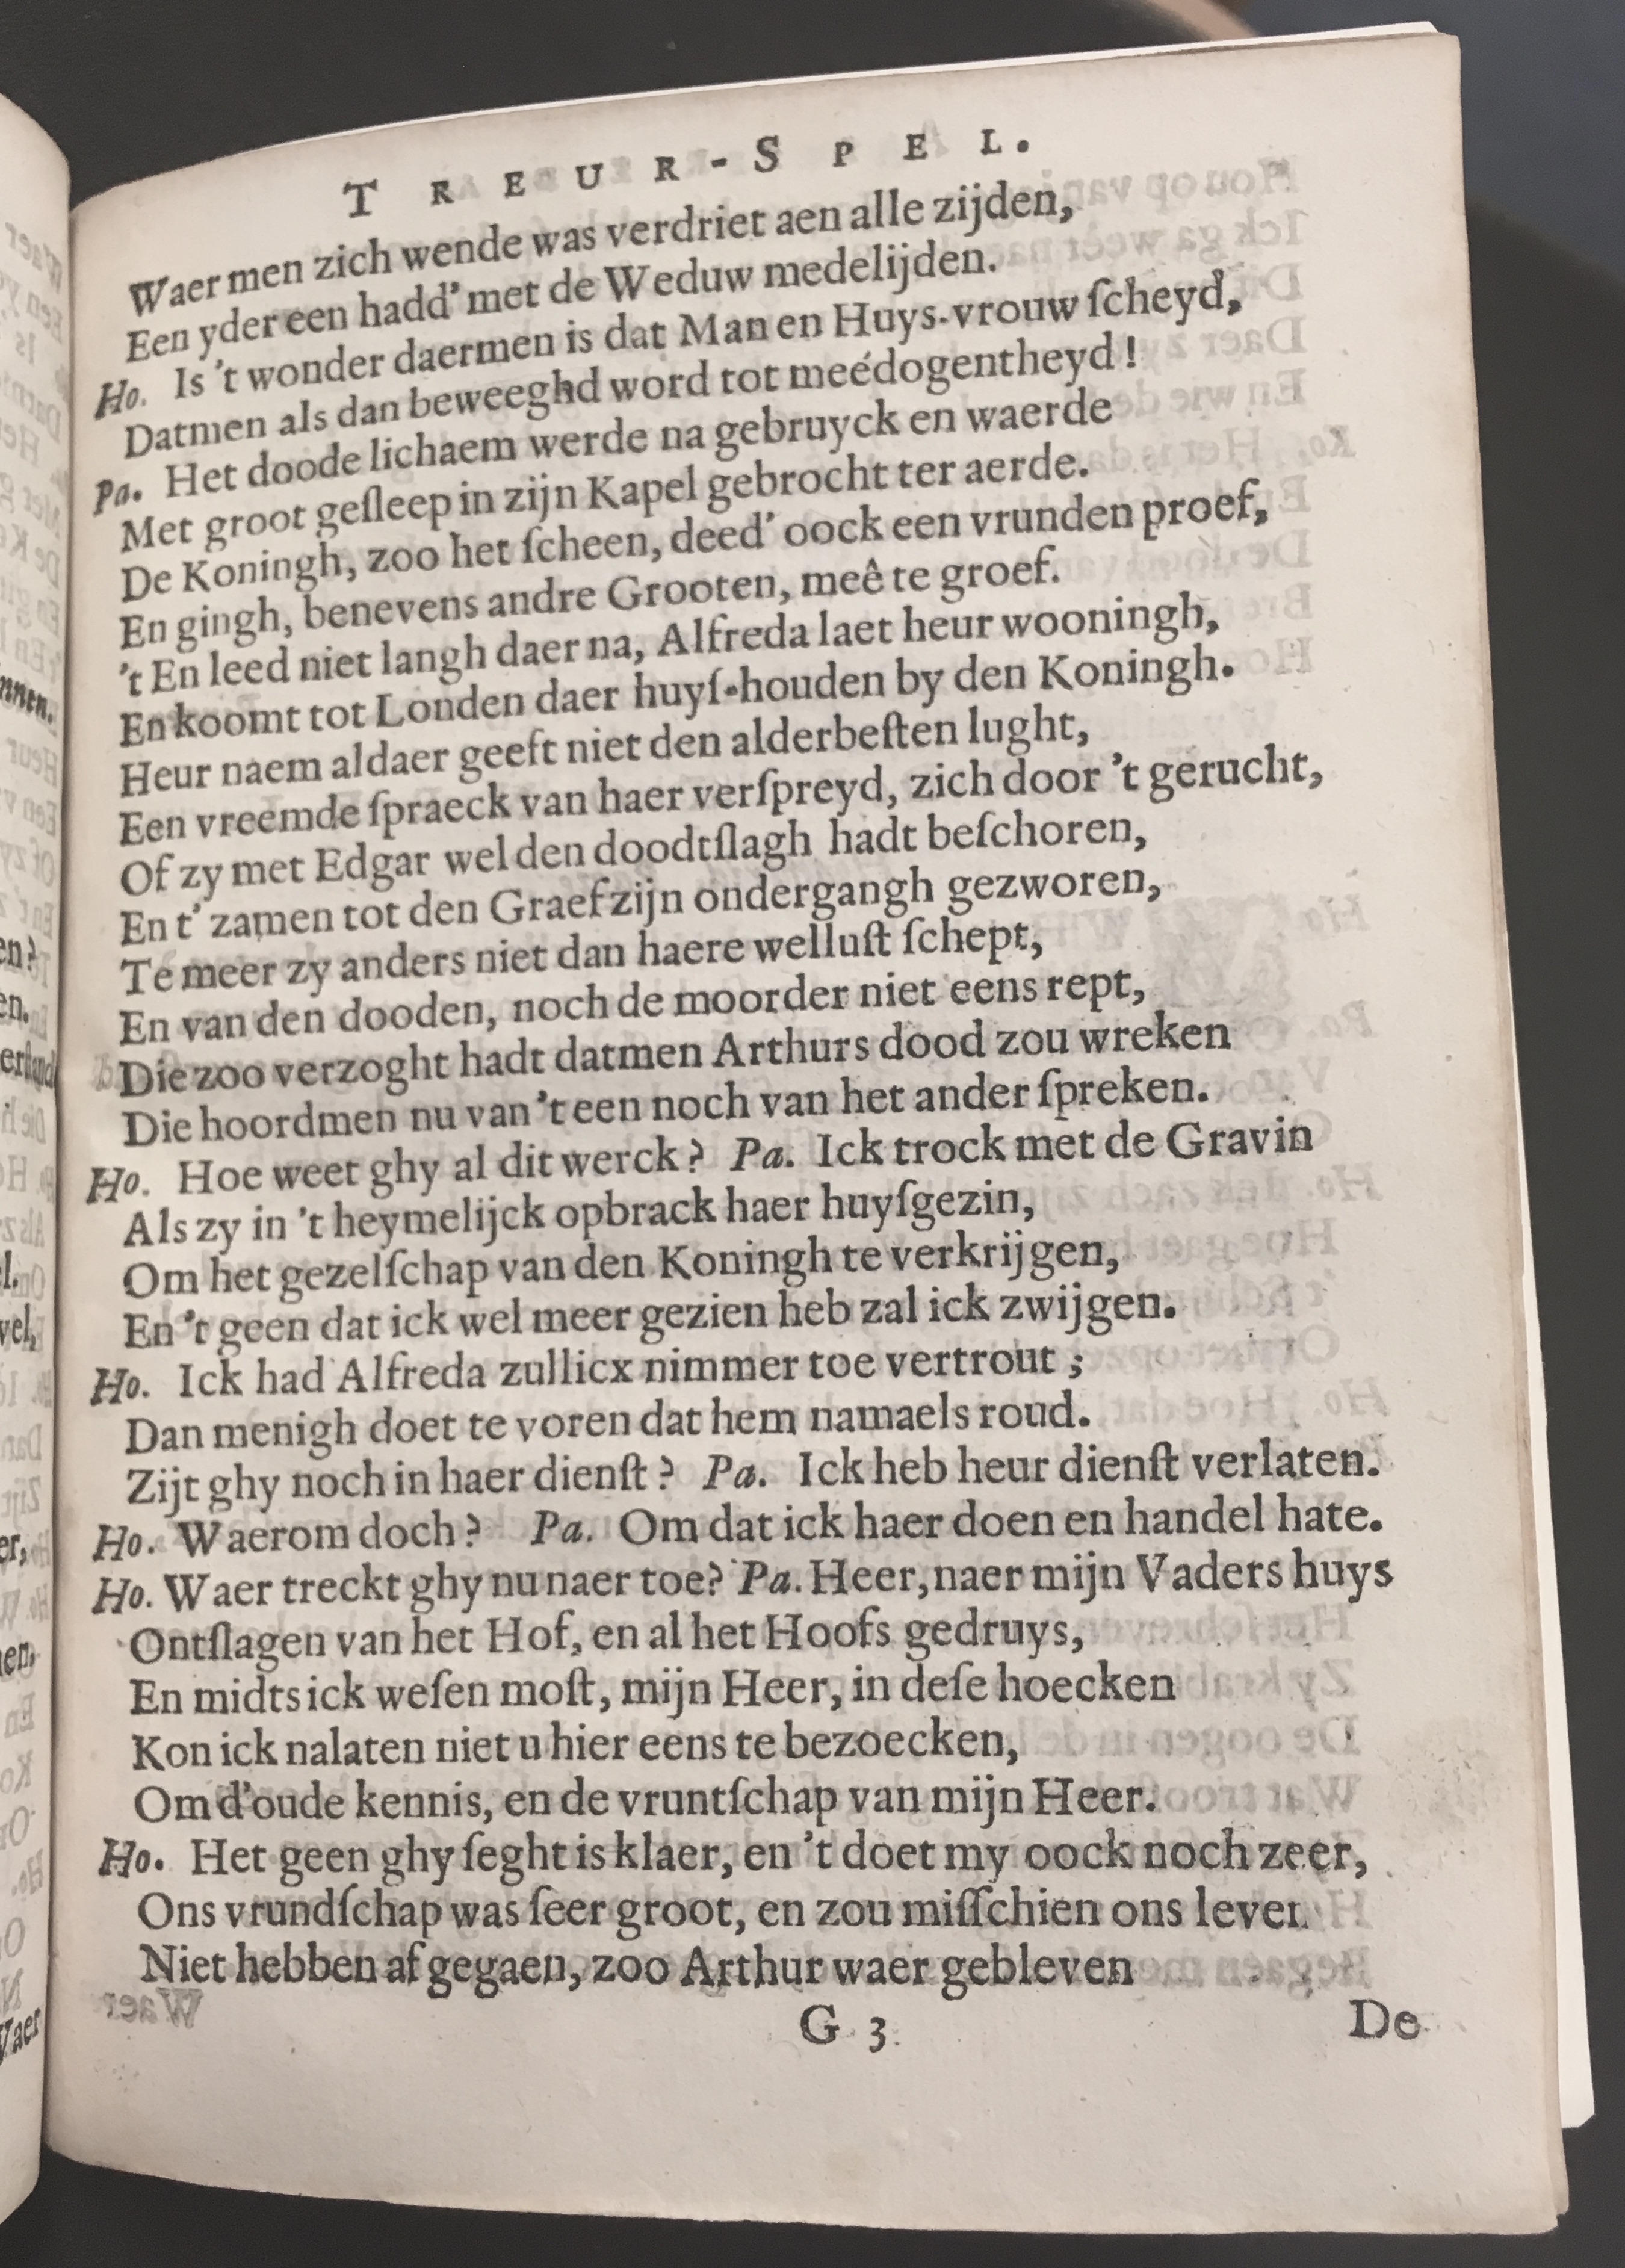 TREUR-SPEL.
Waer men zich wende was verdriet aen alle zijden,
Een yder een hadd' met de Weduw medelijden.
Ho. Is 't wonder daermen is dat Man en Huys-vrouw ſcheyd,
Datmen als dan beweeghd word tot meédogentheyd!
Pa. Het doode lichaem werde na gebruyck en waerde
Met groot geſleep in zijn Kapel gebrocht ter aerde.
De Koningh, zoo het ſcheen, deed' oock een vrunden proef,
En gingh, benevens andre Grooten, meê te groef.
't En leed niet langh daer na, Alfreda laet heur wooningh,
En koomt tot Londen daer huyſ-houden by den Koningh.
Heur naem aldaer geeft niet den alderbeſten lught,
Een vreemde ſpraeck van haer verſpreyd, zich door 't gerucht,
Of zy met Edgar wel den doodtſlagh hadt beſchoren,
En t' zamen tot den Graef zijn ondergangh gezworen,
Te meer zy anders niet dan haere welluſt ſchept,
En van den dooden, noch de moorder niet eens rept,
Die zoo verzoght hadt datmen Arthurs dood zou wreken
Die hoordmen nu van 't een noch van het ander ſpreken.
Ho. Hoe weet ghy al dit werck? Pa. Ick trock met de Gravin
Als zy in 't heymelijck opbrack haer huyſgezin,
Om het gezelſchap van den Koningh te verkrijgen,
En 't geen dat ick wel meer gezien heb zal ick zwijgen.
Ho. Ick had Alfreda zullicx nimmer toe vertrout;
Dan menigh doet te voren dat hem namaels roud.
Zijt ghy noch in haer dienſt? Pa. Ick heb heur dienſt verlaten.
Ho. Waerom doch? Pa. Om dat ick haer doen en handel hate.
Ho. Waer treckt ghy nu naer toe? Pa. Heer, naer mijn Vaders huys
Ontſlagen van het Hof, en al het Hoofs gedruys,
En midts ick weſen moſt, mijn Heer, in deſe hoecken
Kon ick nalaten niet u hier eens te bezoecken,
Om d'oude kennis, en de vruntſchap van mijn Heer.
Ho. Het geen ghy ſeght is klaer, en 't doet my oock noch zeer,
Ons vrundſchap was ſeer groot, en zou miſſchien ons leven
Niet hebben af gegaen, zoo Arthur waer gebleven
G 3 De